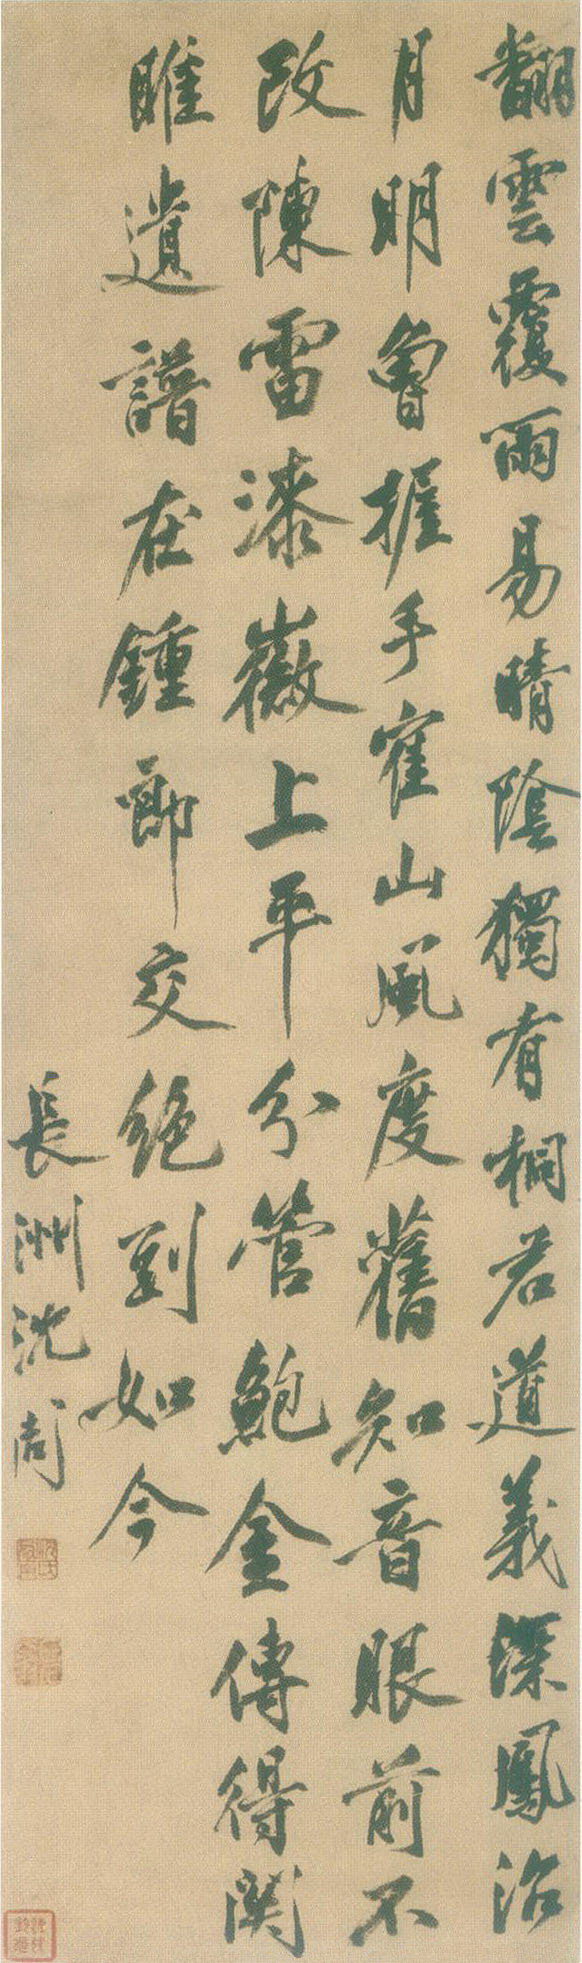 翻雲覆雨易晴陰獨有桐君道義深鳳沼
月明曾握手寉山風度舊知音眼前不
改陳雷漆徽上平分管鮑金傳得関
雎遺譜在鍾郎交絶到如今
長洲沈周